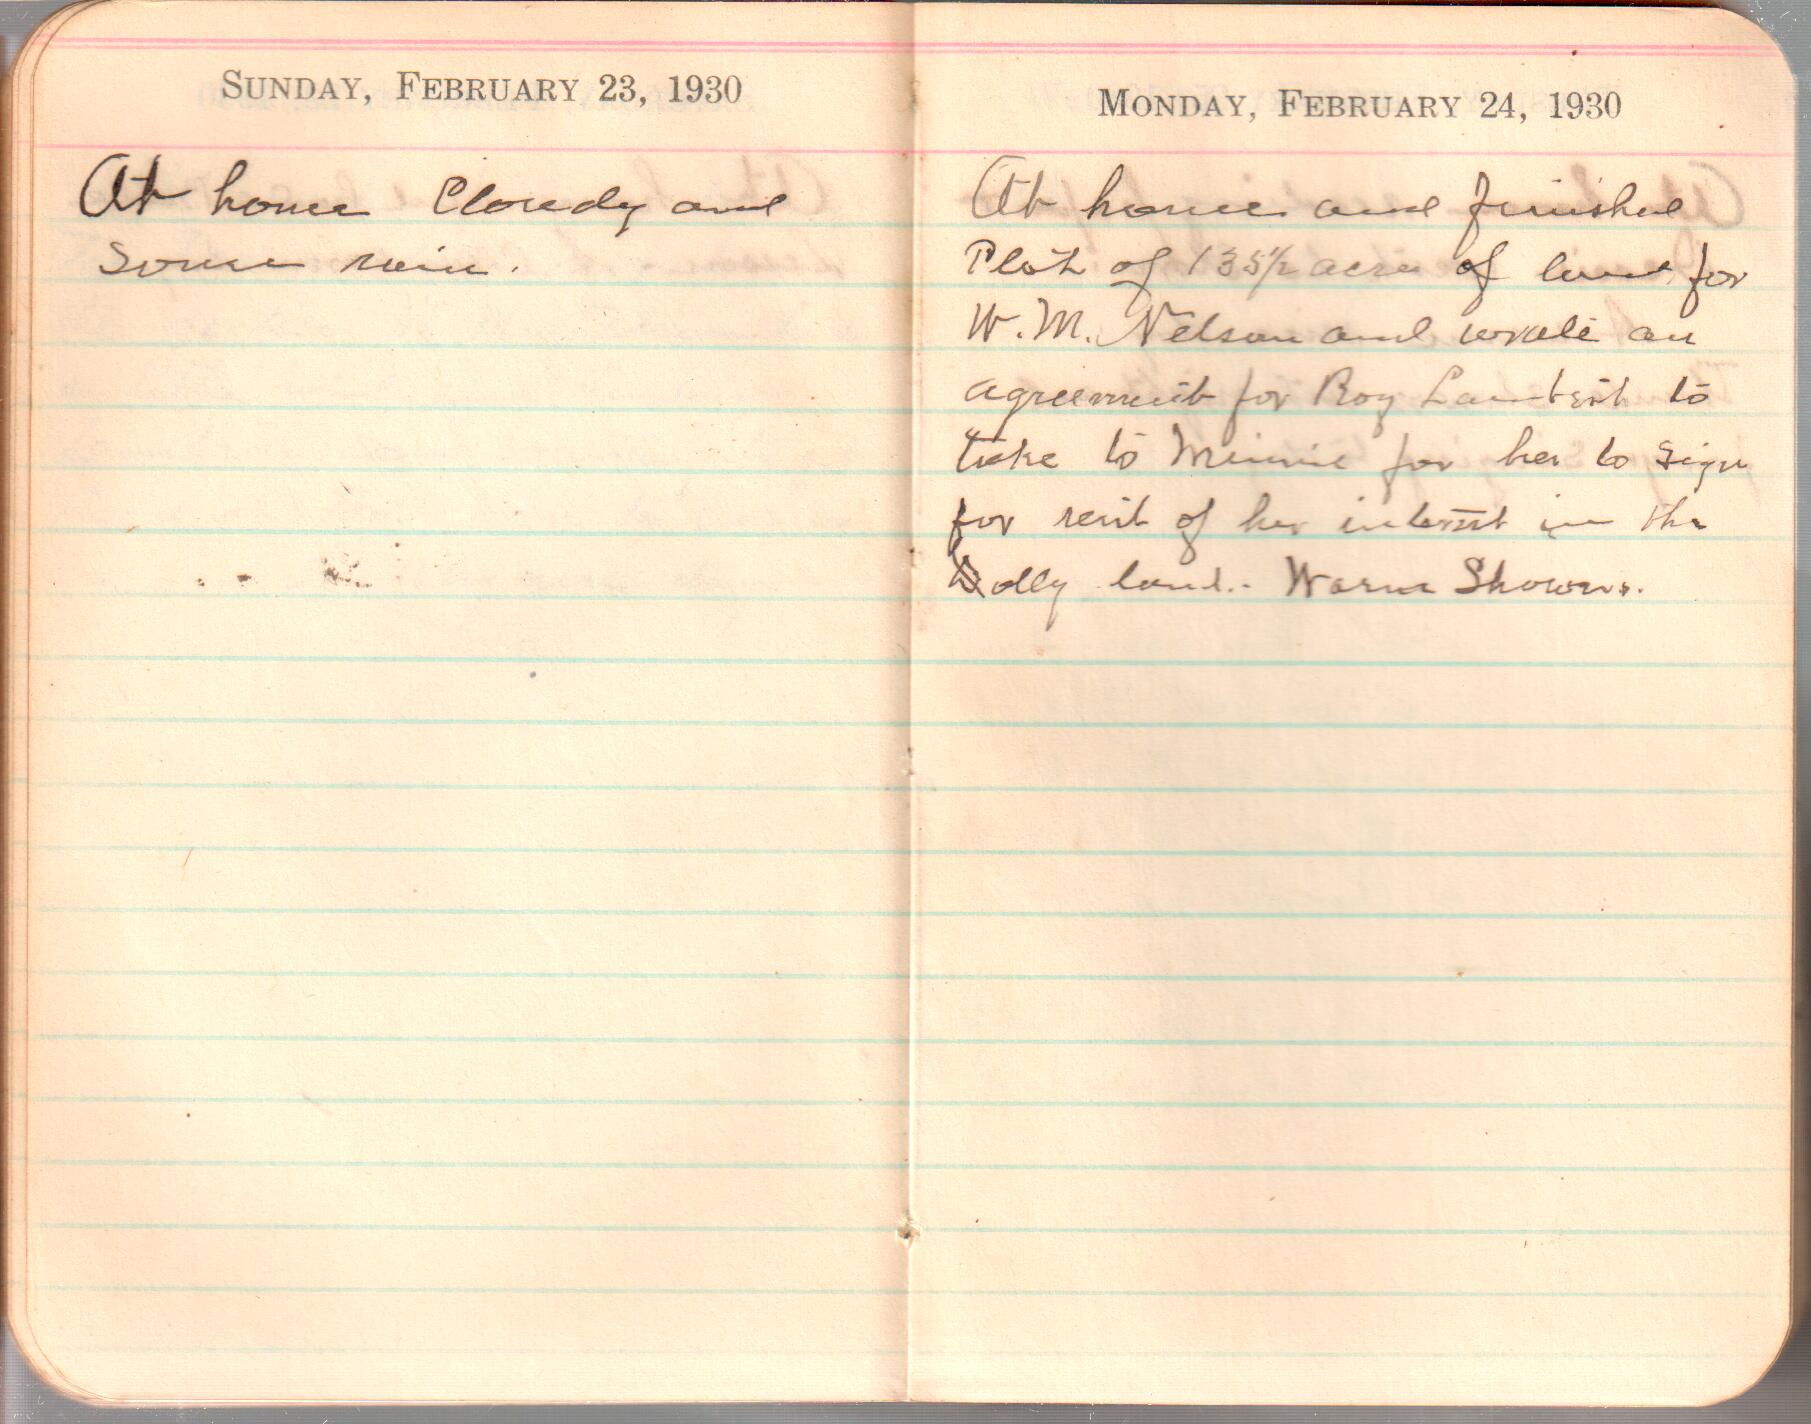 SUNDAY, FEBRUARY 23, 1930
At home Cloudy and
some rain.
MONDAY, FEBRUARY 24, 1930
At home and finished
Plat of 135 1/2 acre of land for
W. M. Nelson and wrote an
agreement for Roy Lambert to
take to Minnie for her to sign
for rent of her interest in the
Dolly land. - Warm Showers.